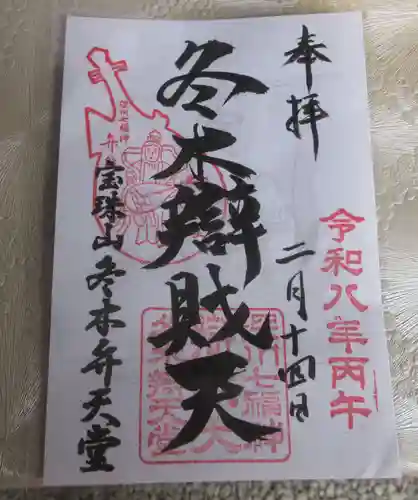 奉拝
令和八年丙午
二月十四日
冬木辯財天
宝珠山冬木弁天堂
深川七福神